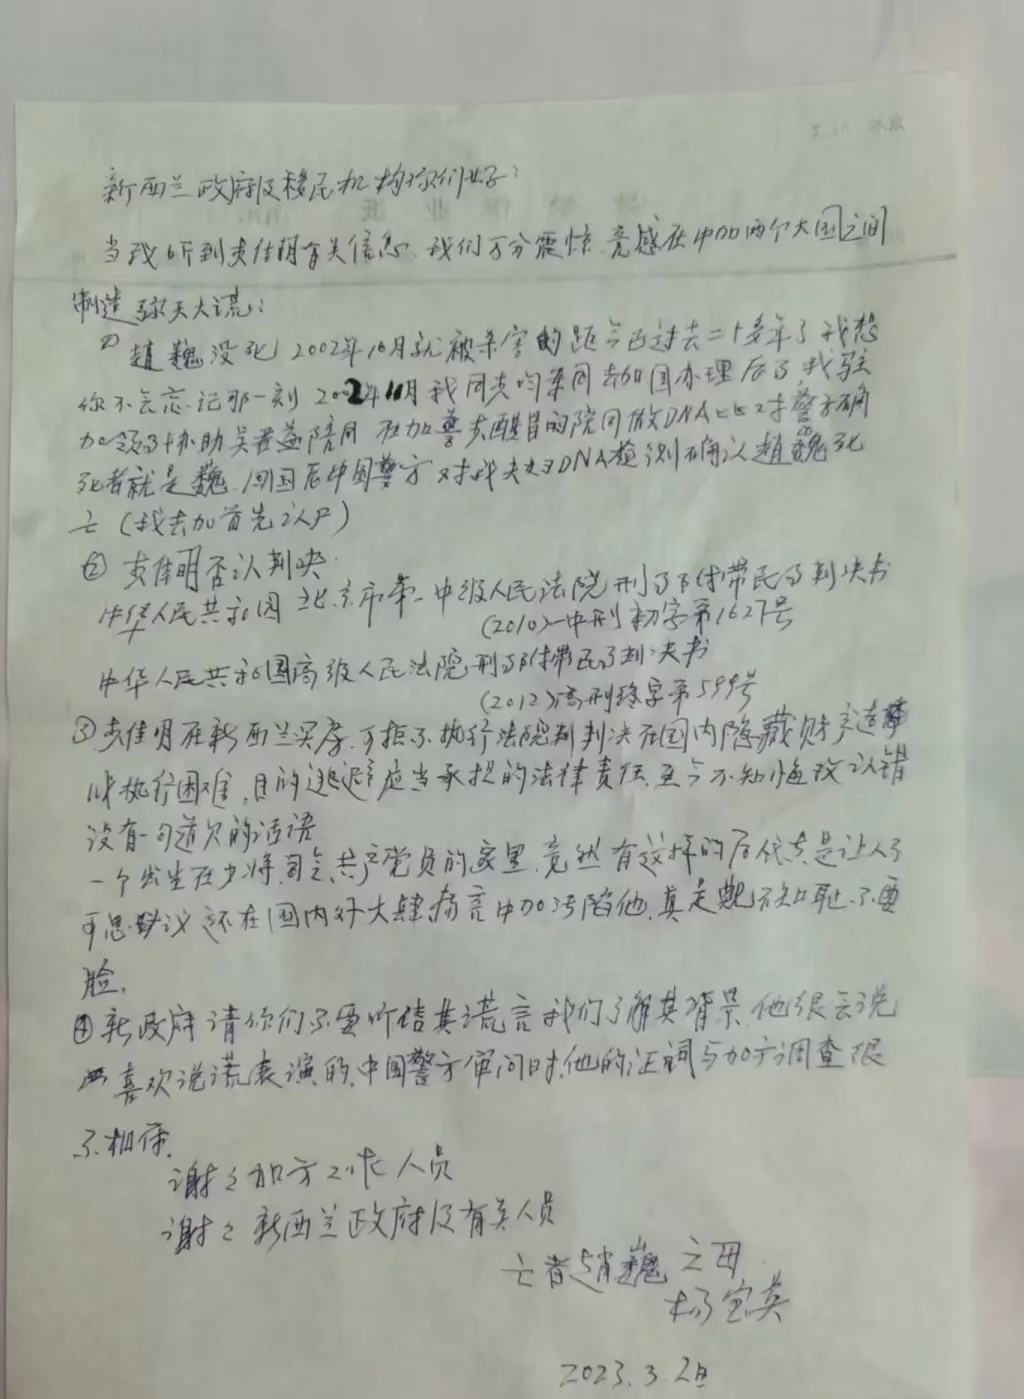 新西兰政府及移民机构你们好:
当我听到李佳明有关信息.我们万分震惊.竟感在中加两个大国之间
制造弥天大谎:
① 趙巍没死 2002年10月就被杀害的距今已过去二十多年了我想
你不会忘记那一刻 2002年11月我同李均革同去加国办理后事我驻
加领事协助吴君益陪同 在加警 的陪同做DNA比对警方确
死者就是巍.回国后中国警方对我夫妇DNA检测确认趙巍死
亡(我去加首先认尸)
② 李佳明否认判决:
中华人民共和国北京市第一中级人民法院刑事附带民事判决书
(2010)一中刑初字第1627号
中华人民共和国高级人民法院刑事附带民事判决书
(2012)高刑终字第599号
③李佳明在新西兰买房.可拒不执行法院判判决在国内隐藏财产造
成执行困难,目的逃避应当承担的法律责任.至今不知悔改认错
没有一句道欠的话语
一个出生在少将.司令.共产党员的家里.竟然有这样的后代真是让人不
可思议还在国内外大肆扬言中加污陷他.真是 不知耻.不要
脸.
④新政府请你们不要听信其谎言我们了解其背景.他很会说
喜欢说谎表演的.中国警方审问时.他的证词与加方调查很
不相符.
谢々加方工作人员
谢々新西兰政府及有关人员
亡者趙巍之母
杨宝英
2023.3.2日